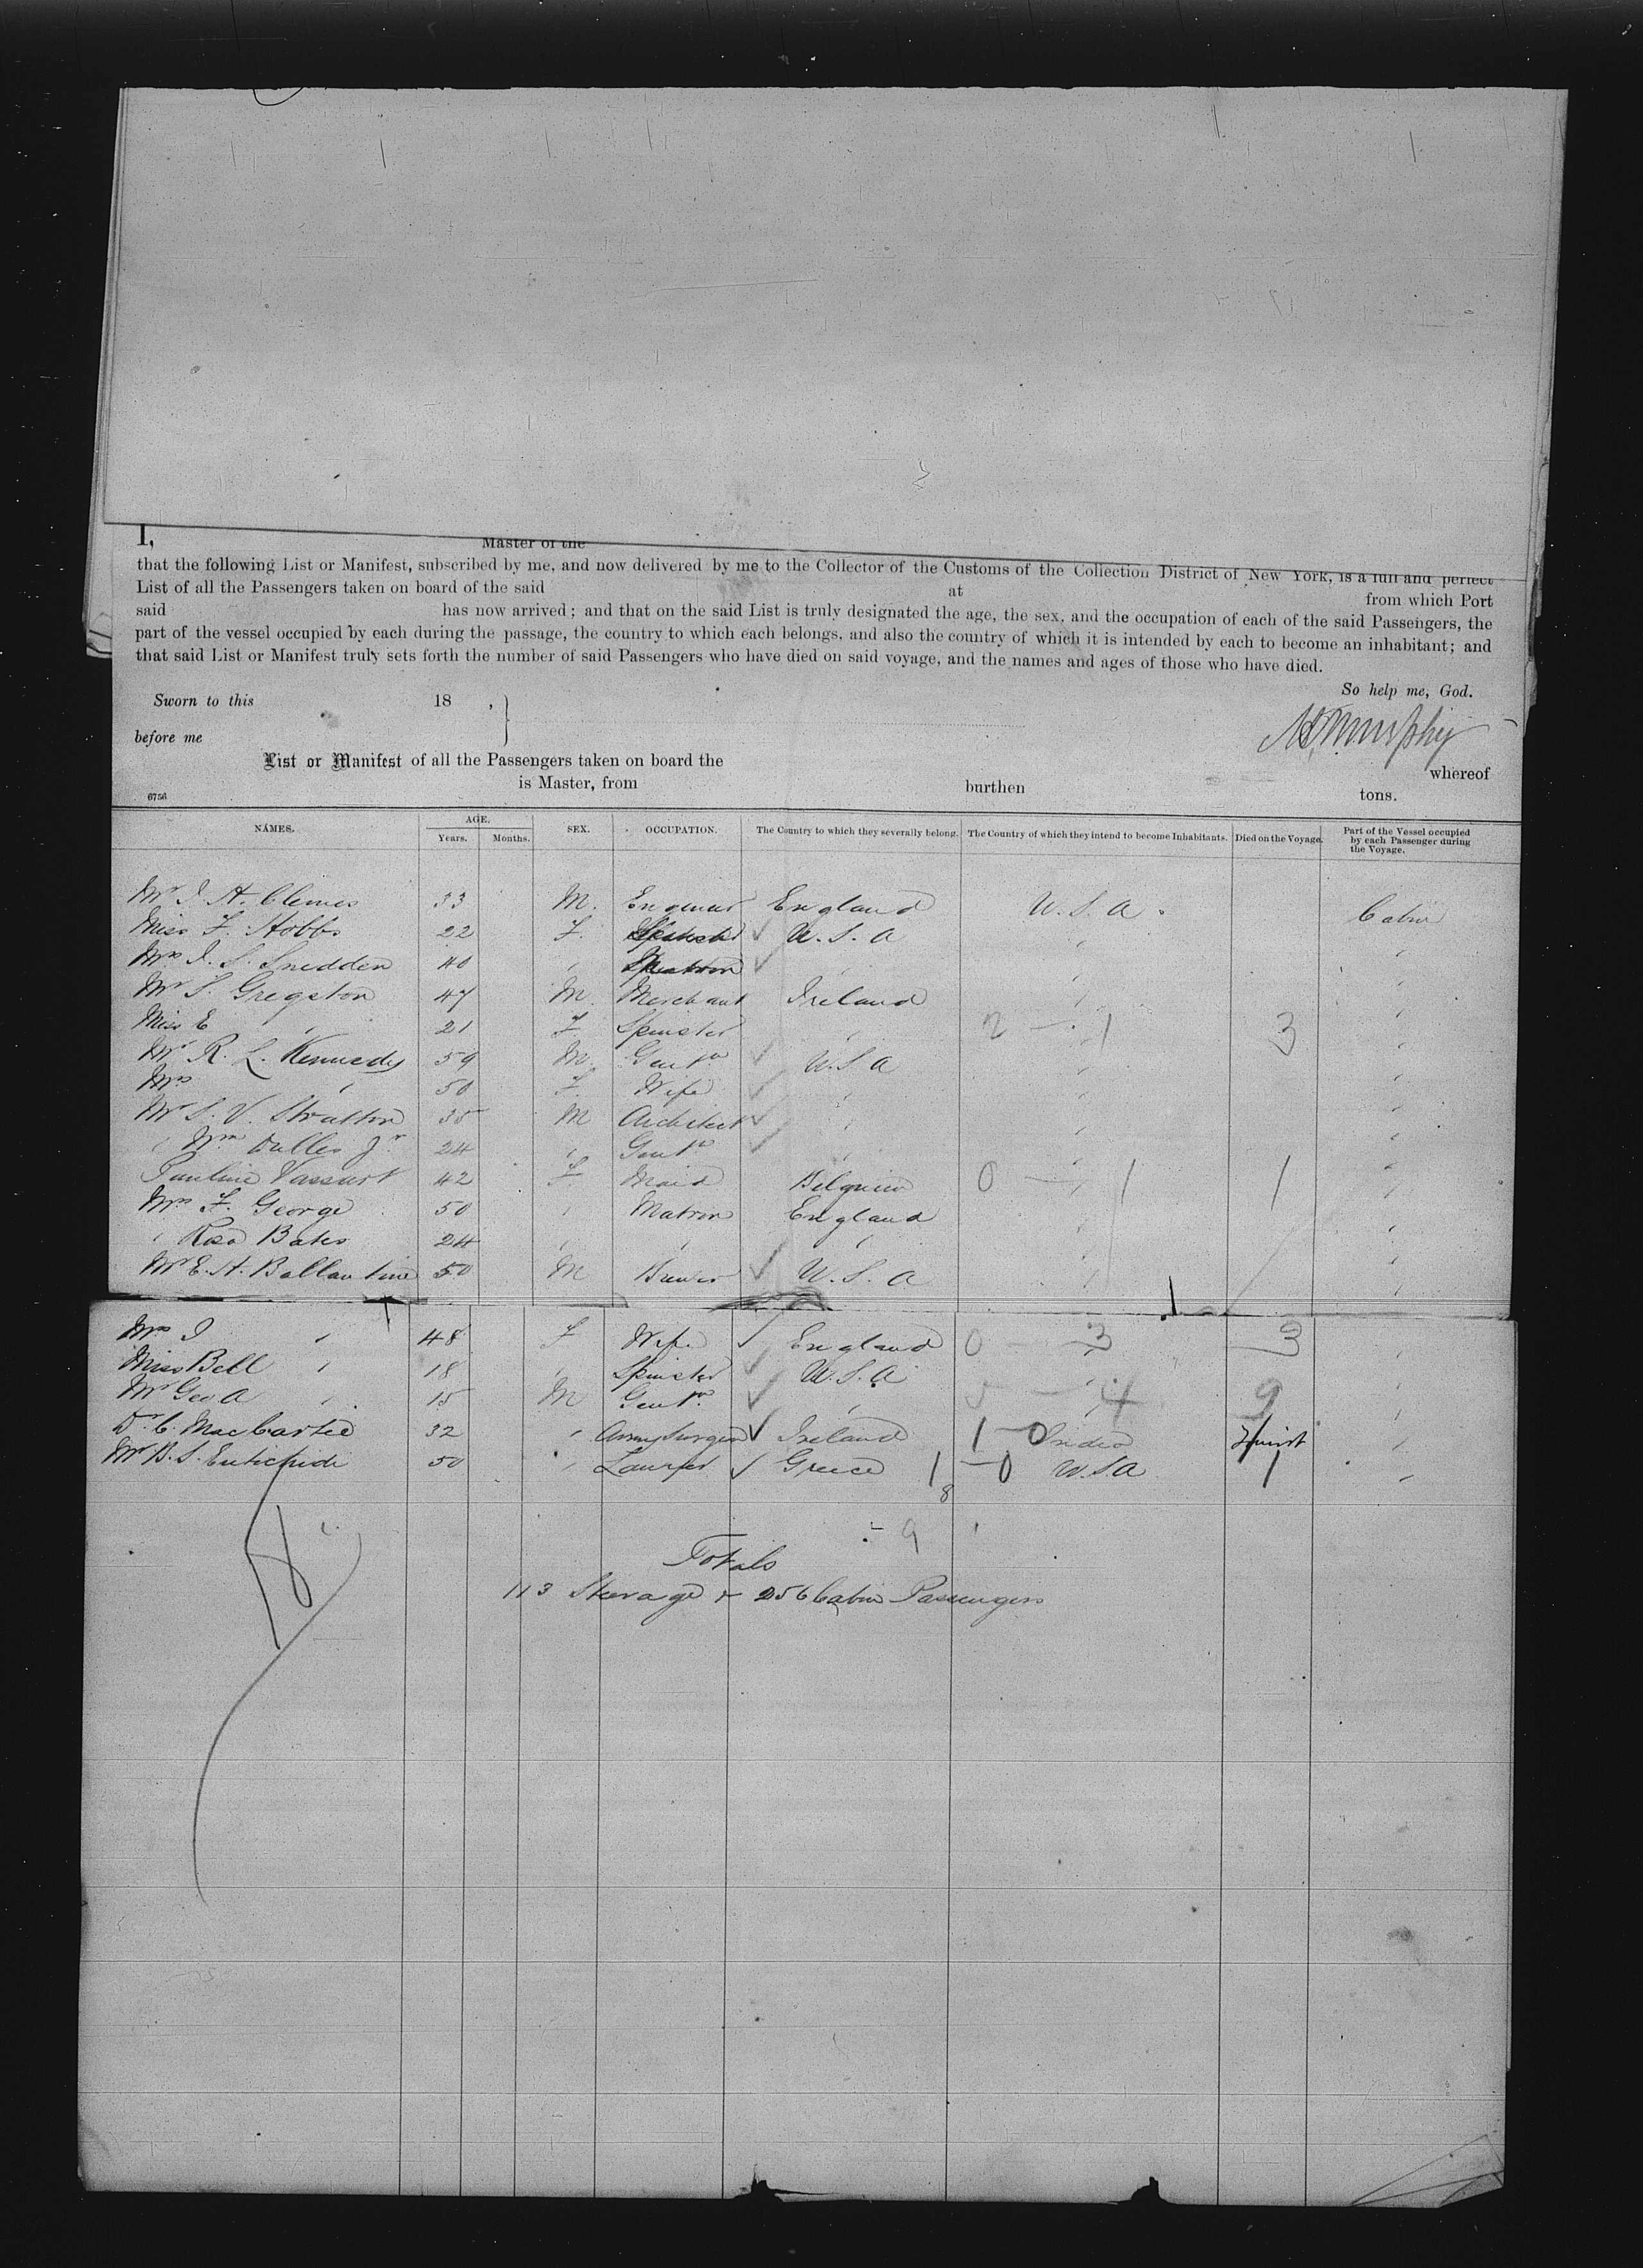 I, Master of the
that the following List or Manifest, subscribed by me, and now delivered by me to the Collector of the Customs of the Collection District of New York, is a full and perfect
List of all the Passengers taken on board of the said at from which Port
said has now arrived; and that on the said List is truly designated the age, the sex, and the occupation of each of the said Passengers, the
part of the vessel occupied by each during the passage, the country to which each belongs, and also the country of which it is intended by each to become an inhabitant; and
that said List or Manifest truly sets forth the number of said Passengers who have died on said voyage, and the names and ages of those who have died.
So help me, God.
Sworn to this 18 ,
Murphy
before me
List or Manifest of all the Passengers taken on board the whereof
is Master, from burthen tons.
6756
NAMES. AGE. SEX. OCCUPATION. The Country to which they severally belong. The Country of which they intend to become Inhabitants. Died on the Voyage. Part of the Vessel occupied by each Passenger during the Voyage.
Years. Months.
Mr J. A. Clemes 33 M. Engineer England U.S.A. Cabin
Miss F. Stobbs 22 F. U.S.A
Mrs J. S. Snedden 40
Mr S. Gregston 47 M. Merchant Ireland
Miss E " 21 F Spinster " 2 - 1 3
Mr R. L. Kennedy 59 M. Gentn U.S.A
Mrs " 50 F. Wife "
Mr S. V. Stratton 35 M Architect "
" Wm Dulles Jr 24 " Gentn "
Pauline Vassart 42 F. Maid Belgium 0 - 1 1
Mrs F. George 50 " Matron England
" Rosa Bates 24 " " "
Mr E. H. Ballantine 50 M Brewer U.S.A
Mrs J " 48 F Wife England 0 - 3 3
Miss Bell " 18 " Spinster U.S.A
Mr Geo A " 15 M Gentn " 5 - 4 9
Dr C. MacCartie 32 " Army Surgeon Ireland 1 - 0 India
Mr B. S. 50 " Lawyer Greece 1 - 0 U.S.A 1
8
9
Totals
113 Steerage & 256 Cabin Passengers